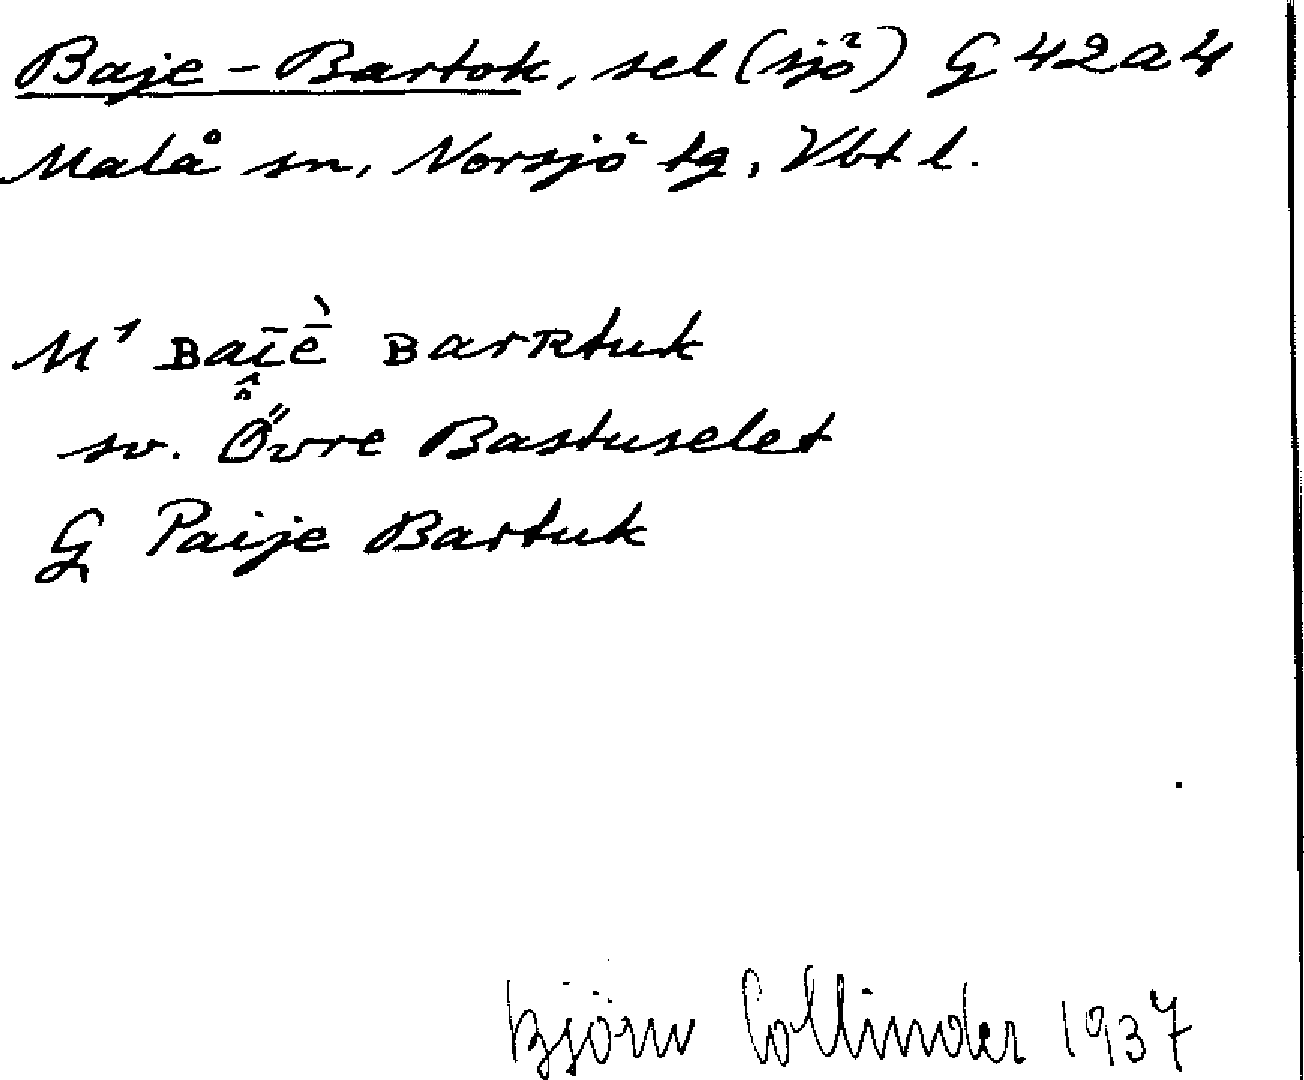 Baje-Bartok, sel (sjö) G 42 a 4
Malå sn, Norsjö tg, Vbt l.
M¹ ʙaī̭ḕ ʙarʀtuk
sv. Övre Bastuselet
G Paije Bartuk
Björn Collinder 1937